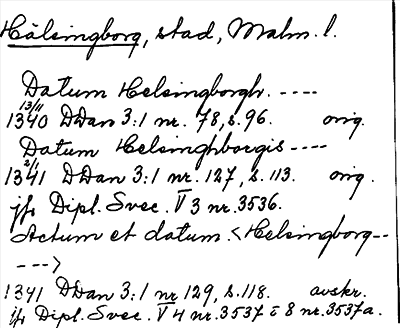 Hälsingborg, stad, Malm. l.
Datum Helsingborgh. ----
13/11
1340 DDan 3:1 nr. 78, s. 96. orig.
Datum Helsinghborgis ----
2/1
1341 DDan 3:1 nr. 127, s. 113. orig.
jfr Dipl. Svec. V 3 nr. 3536.
Actum et datum. <Helsingborg--
--->
1341 DDan 3:1 nr 129, s. 118. avskr.
jfr Dipl. Svec. V 4 nr. 3537 o 8 nr. 3537a.